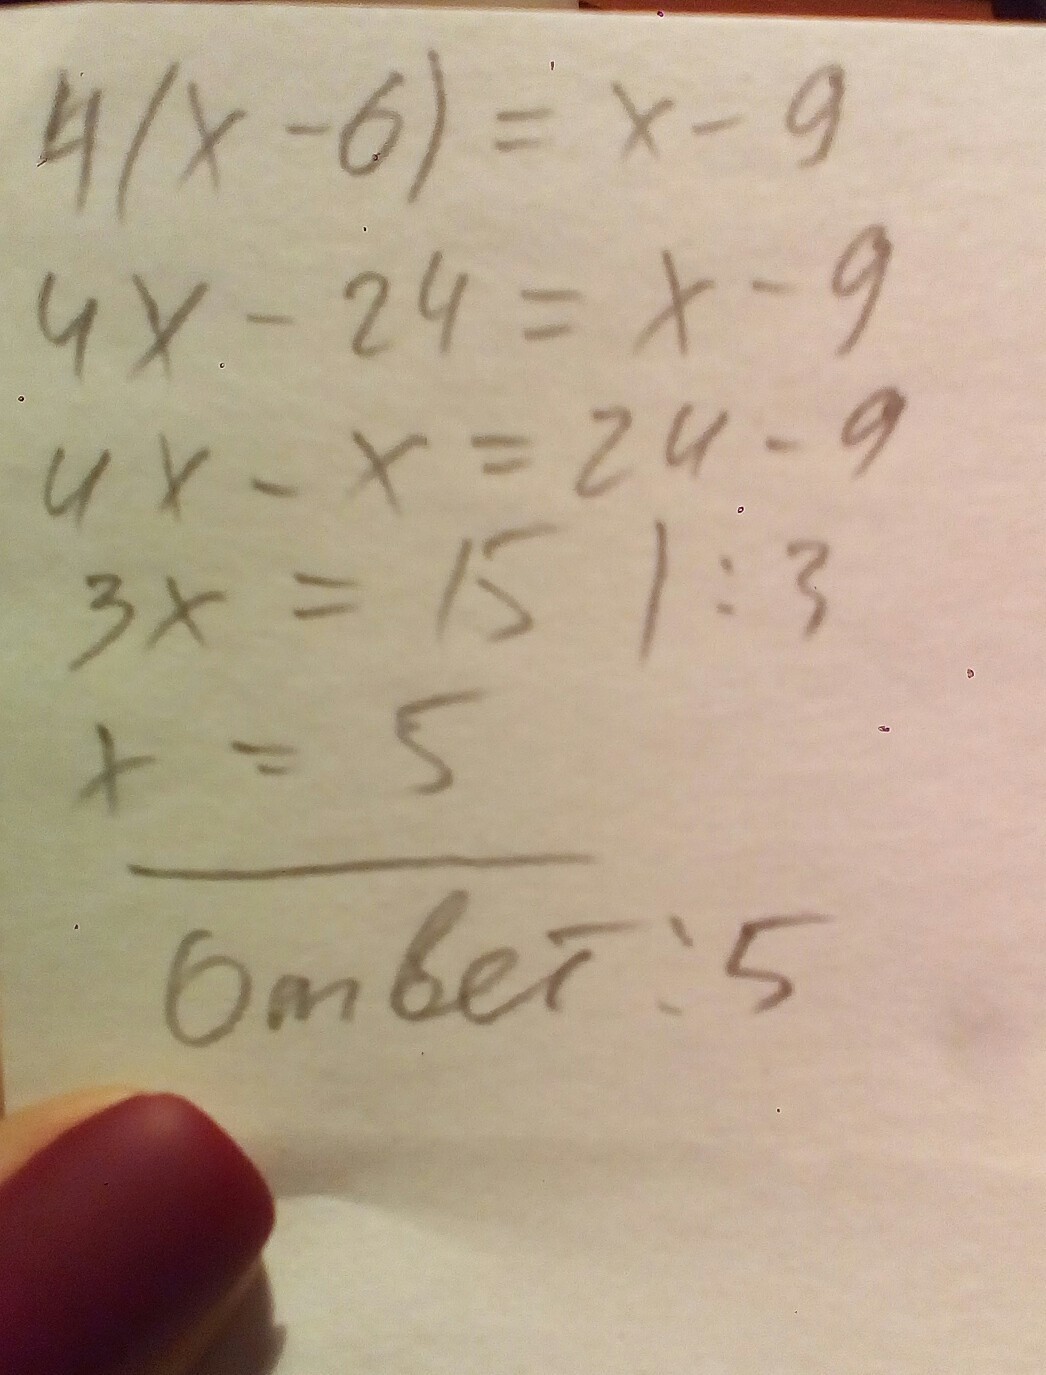 4(x-6) = x-9
4x-24 = x-9
4x-x = 24-9
3x = 15 |:3
x = 5
Ответ: 5